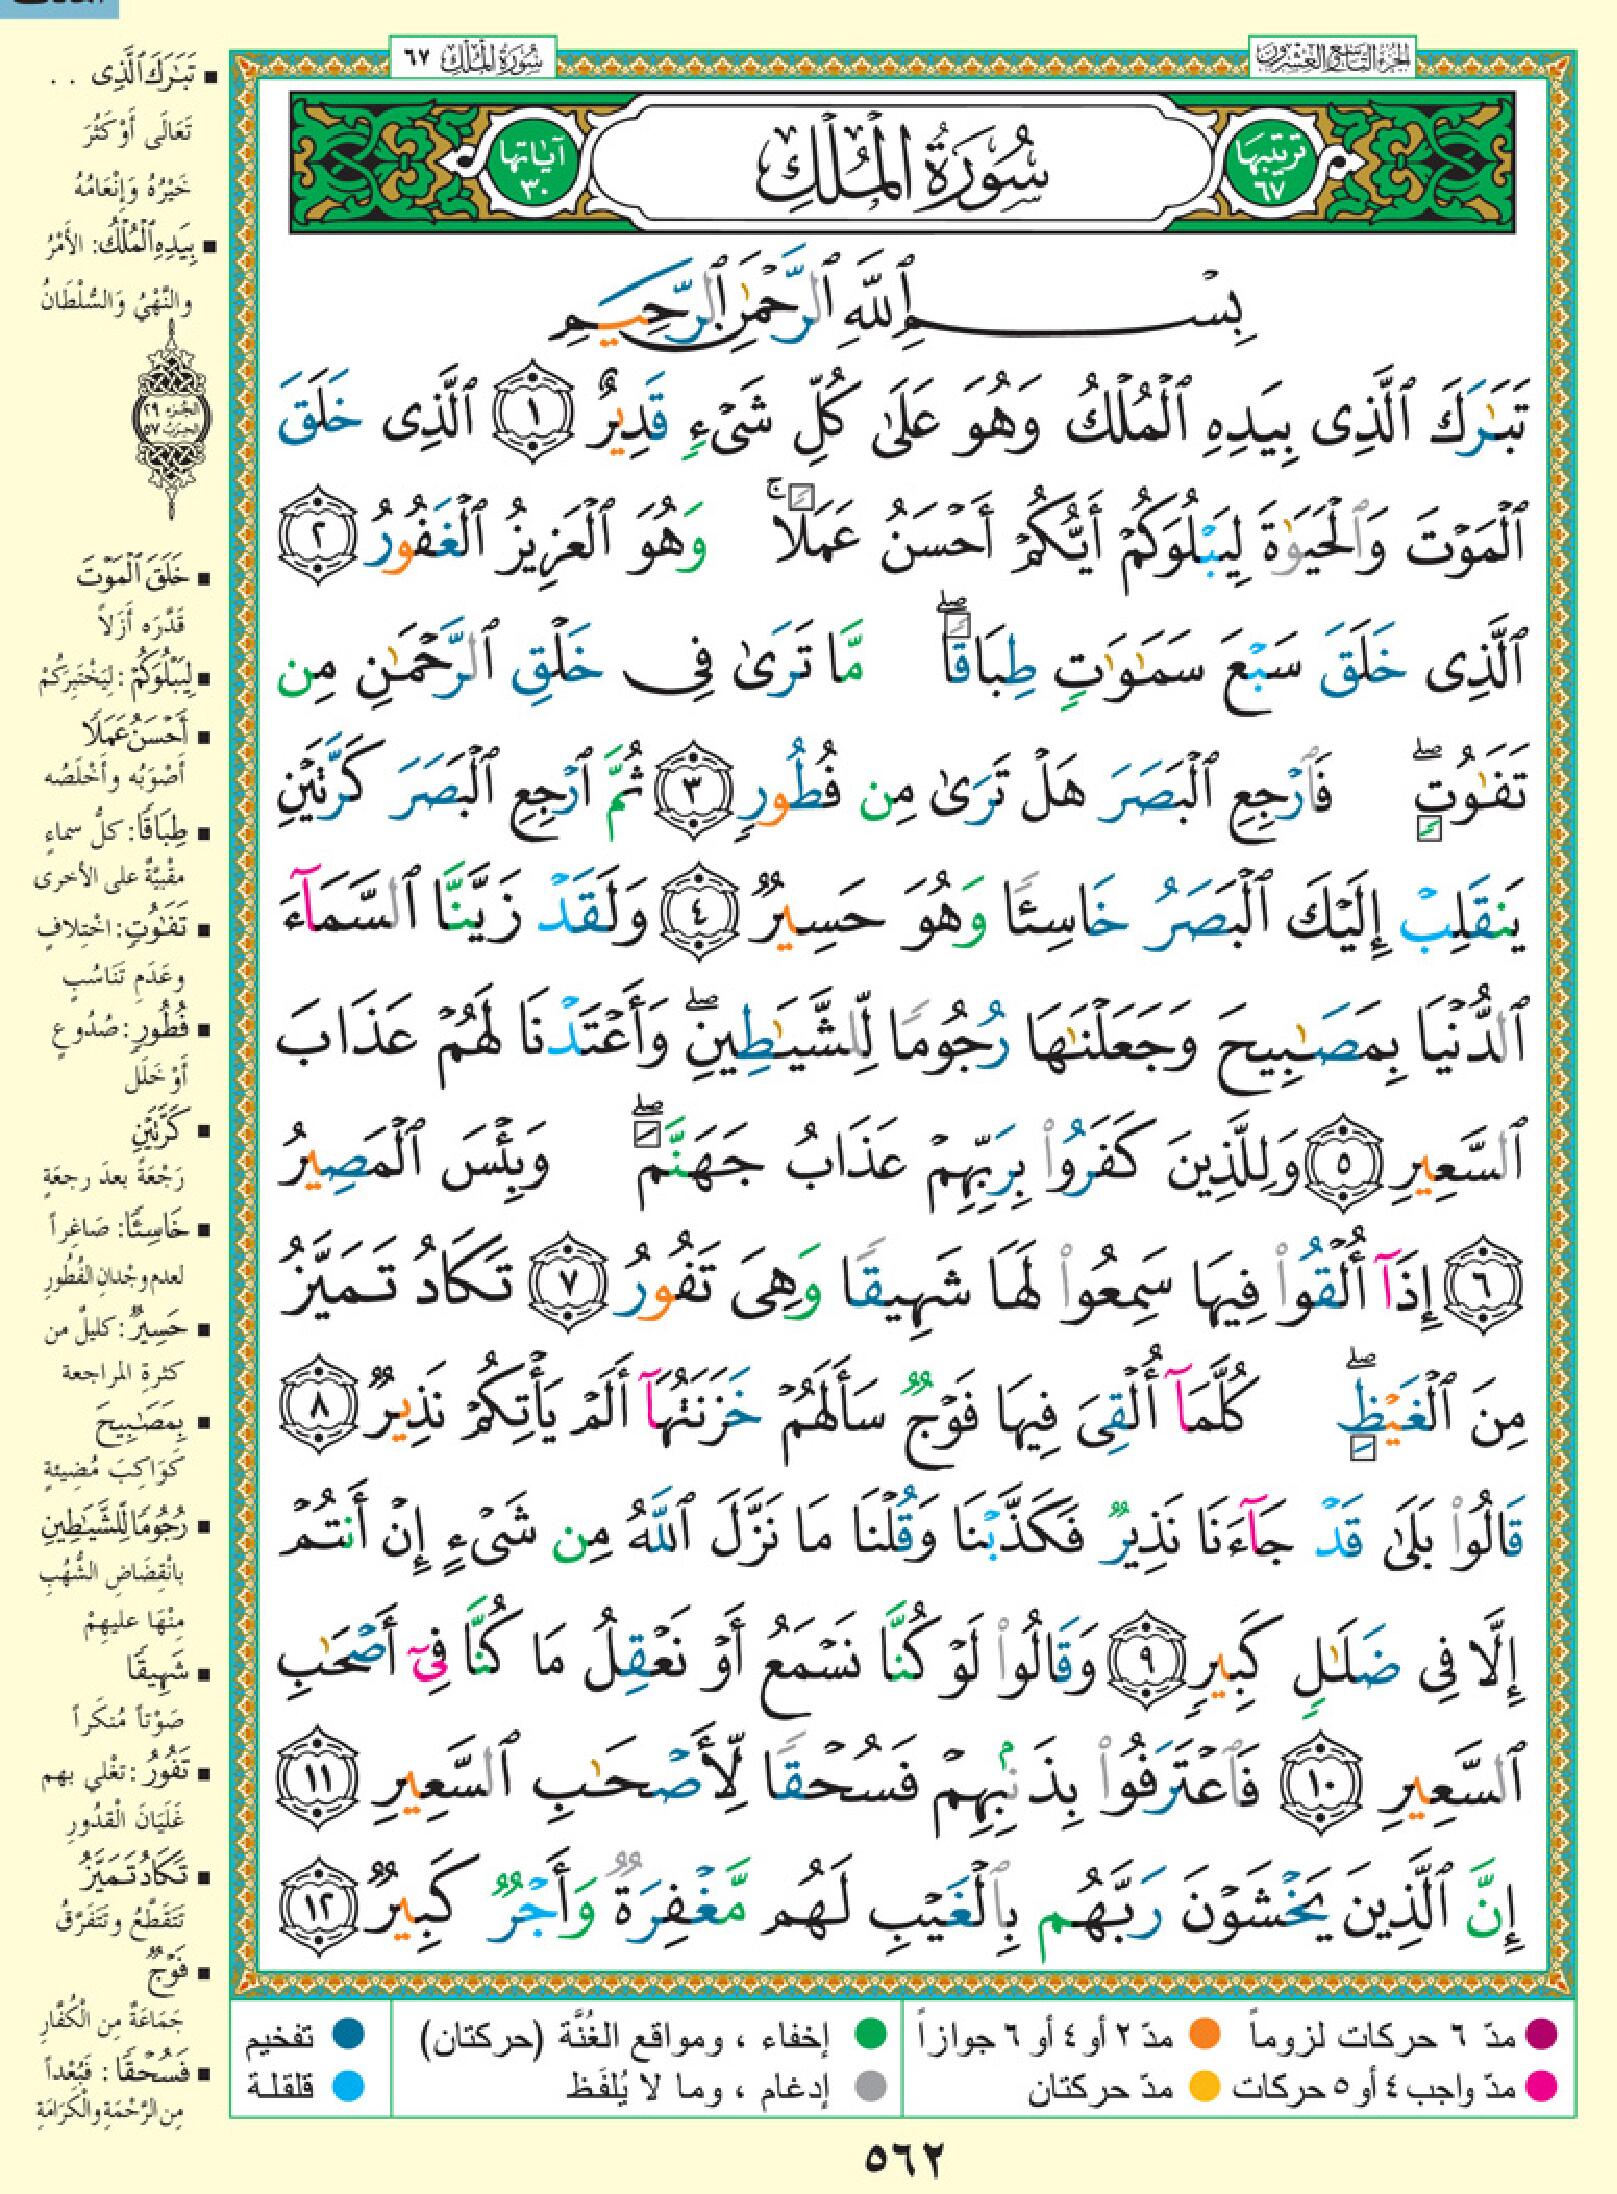 الجزء التاسع والعشرون
سُورَةُ المُلْكِ ٦٧
ترتيبها
٦٧
سُورَةُ المُلْكِ
آياتها
٣٠
بِسْمِ ٱللَّهِ ٱلرَّحْمَٰنِ ٱلرَّحِيمِ
تَبَٰرَكَ ٱلَّذِى بِيَدِهِ ٱلْمُلْكُ وَهُوَ عَلَىٰ كُلِّ شَىْءٍ قَدِيرٌ ١ ٱلَّذِى خَلَقَ
ٱلْمَوْتَ وَٱلْحَيَوٰةَ لِيَبْلُوَكُمْ أَيُّكُمْ أَحْسَنُ عَمَلًا ۚ وَهُوَ ٱلْعَزِيزُ ٱلْغَفُورُ ٢
ٱلَّذِى خَلَقَ سَبْعَ سَمَٰوَٰتٍ طِبَاقًا ۖ مَّا تَرَىٰ فِى خَلْقِ ٱلرَّحْمَٰنِ مِن
تَفَٰوُتٍ ۖ فَٱرْجِعِ ٱلْبَصَرَ هَلْ تَرَىٰ مِن فُطُورٍ ٣ ثُمَّ ٱرْجِعِ ٱلْبَصَرَ كَرَّتَيْنِ
يَنقَلِبْ إِلَيْكَ ٱلْبَصَرُ خَاسِئًا وَهُوَ حَسِيرٌ ٤ وَلَقَدْ زَيَّنَّا ٱلسَّمَآءَ
ٱلدُّنْيَا بِمَصَٰبِيحَ وَجَعَلْنَٰهَا رُجُومًا لِّلشَّيَٰطِينِ ۖ وَأَعْتَدْنَا لَهُمْ عَذَابَ
ٱلسَّعِيرِ ٥ وَلِلَّذِينَ كَفَرُوا۟ بِرَبِّهِمْ عَذَابُ جَهَنَّمَ ۖ وَبِئْسَ ٱلْمَصِيرُ
٦ إِذَآ أُلْقُوا۟ فِيهَا سَمِعُوا۟ لَهَا شَهِيقًا وَهِىَ تَفُورُ ٧ تَكَادُ تَمَيَّزُ
مِنَ ٱلْغَيْظِ ۖ كُلَّمَآ أُلْقِىَ فِيهَا فَوْجٌ سَأَلَهُمْ خَزَنَتُهَآ أَلَمْ يَأْتِكُمْ نَذِيرٌ ٨
قَالُوا۟ بَلَىٰ قَدْ جَآءَنَا نَذِيرٌ فَكَذَّبْنَا وَقُلْنَا مَا نَزَّلَ ٱللَّهُ مِن شَىْءٍ إِنْ أَنتُمْ
إِلَّا فِى ضَلَٰلٍ كَبِيرٍ ٩ وَقَالُوا۟ لَوْ كُنَّا نَسْمَعُ أَوْ نَعْقِلُ مَا كُنَّا فِىٓ أَصْحَٰبِ
ٱلسَّعِيرِ ١٠ فَٱعْتَرَفُوا۟ بِذَنۢبِهِمْ فَسُحْقًا لِّأَصْحَٰبِ ٱلسَّعِيرِ ١١
إِنَّ ٱلَّذِينَ يَخْشَوْنَ رَبَّهُم بِٱلْغَيْبِ لَهُم مَّغْفِرَةٌ وَأَجْرٌ كَبِيرٌ ١٢
▪ تَبَٰرَكَ ٱلَّذِى . .
تَعَالَى أَوْ كَثُرَ
خَيْرُهُ وَإِنْعَامُهُ
▪ بِيَدِهِ ٱلْمُلْكُ: الأَمْرُ
والنَّهْيُ وَالسُّلْطَانُ
الجزء ٢٩
الحزب ٥٧
▪ خَلَقَ ٱلْمَوْتَ
قَدَّرَه أَزَلاً
▪ لِيَبْلُوَكُمْ: لِيَخْتَبِرَكُمْ
▪ أَحْسَنُ عَمَلًا
أَصْوَبُه وأَخْلَصُه
▪ طِبَاقًا: كلُّ سماءٍ
مقْبِيَّةٌ على الأخرى
▪ تَفَٰوُتٍ: اخْتِلافٍ
وعَدَمِ تَنَاسُبٍ
▪ فُطُورٍ: صُدُوعٍ
أَوْ خَلَل
▪ كَرَّتَيْنِ
رَجْعَةً بعدَ رجعَةٍ
▪ خَاسِئًا: صَاغِراً
لعدم وجْدانِ الفُطُورِ
▪ حَسِيرٌ: كليلٌ من
كثرةِ المراجعة
▪ بِمَصَٰبِيحَ
كَوَاكِبَ مُضِيئةٍ
▪ رُجُومًا لِّلشَّيَٰطِينِ
بانْقِضَاضِ الشُّهُبِ
مِنْهَا عليهِمْ
▪ شَهِيقًا
صَوْتاً مُنكَراً
▪ تَفُورُ: تغْلي بهم
غَلَيَانَ الْقدُورِ
▪ تَكَادُ تَمَيَّزُ
تَتَقَطَّعُ وتَتَفَرَّقُ
▪ فَوْجٌ
جَمَاعَةٌ مِن الْكُفَّارِ
▪ فَسُحْقًا: فَبُعْداً
مِن الرَّحْمَةِ والْكَرَامَةِ
مدّ ٦ حركات لزوماً مدّ ٢ أو ٤ أو ٦ جوازاً إخفاء ، ومواقع الغُنَّة (حركتان) تفخيم
مدّ واجب ٤ أو ٥ حركات مدّ حركتان إدغام ، وما لا يُلفَظ قلقلة
٥٦٢